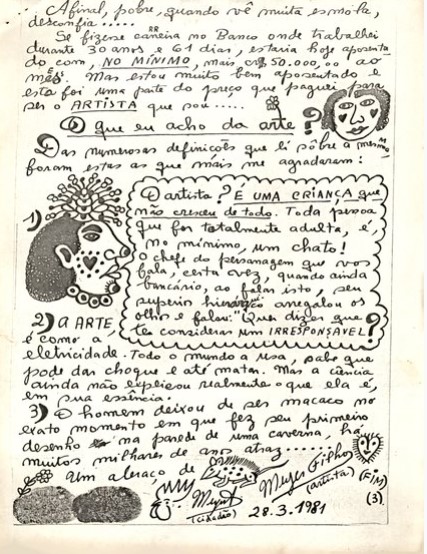 Afinal, pobre, quando vê muita esmola,
desconfia.....
Se fizesse carreira no Banco onde trabalhei
durante 30 anos e 61 dias, estaria hoje aposenta
do com, NO MÍNIMO, mais Cr$ 50.000,00 ao
mês. Mas estou muito bem aposentado e
esta foi uma parte do preço que paguei para
ser o ARTISTA que sou.....
O que eu acho da arte?
Das numerosas definições que li sôbre a mesma
foram estas as que mais me agradaram:
1)
O artista? É UMA CRIANÇA que
não cresceu de todo. Toda pessoa
que for totalmente adulta, é,
no mínimo, um chato!
O chefe do personagem que vos
fala, certa vez, quando ainda
bancário, ao falar isto, seu
superior hierárquico arregalou os
olhos e falou: "Quer dizer que
te consideras um IRRESPONSÁVEL?
2) A ARTE,
é como a
eletricidade. Todo o mundo a usa, sabe que
pode dar choque e até matar. Mas a ciência
ainda não explicou realmente o que ela é,
em sua essência.
3) O homem deixou de ser macaco no
exato momento em que fez seu primeiro
desenho na parede de uma caverna, há
muitos milhares de anos atraz.......
Um abraço de
Meyer Filho
(cidadão) (artista) (FIM)
28.3.1981 (3)